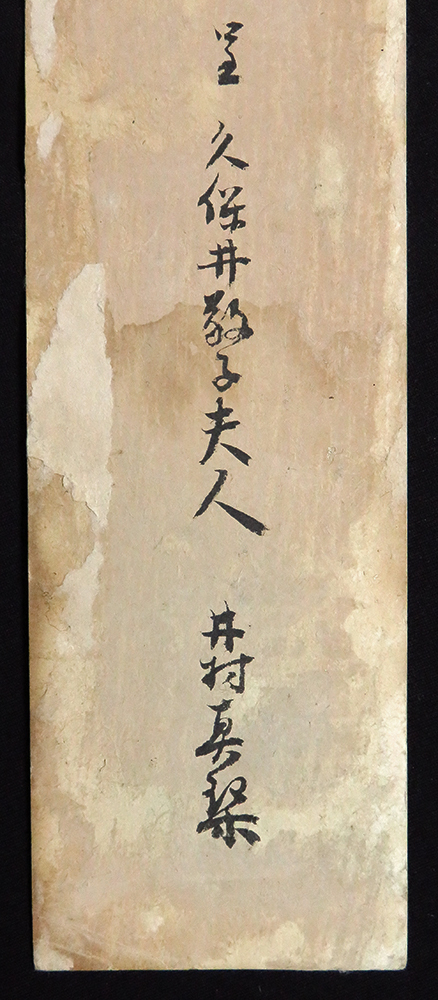 呈 久保井敬子夫人 井村真琴